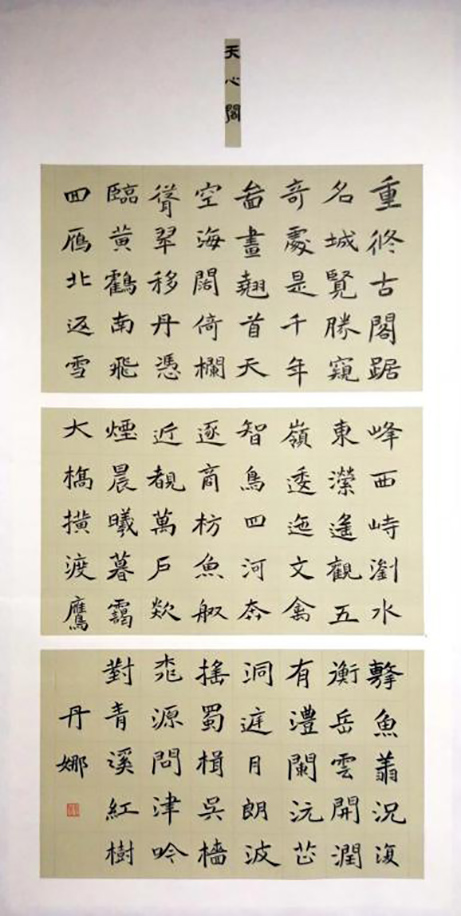 天心閣
重修古閣踞
名城覽勝窺
奇處是千年
啚畫翹首天
空海闊倚欄
聳翠移丹憑
臨黃鶴南飛
四雁北返雪
峰西峙瀏水
東瀠遙觀五
嶺逶迤文禽
智鳥四河奔
逐商枋魚舠
近覩萬戶欸
煙晨曦暮靄
大橋橫渡鷹
擊魚翥況復
衡岳雲開潤
有澧闌沅芷
洞庭月朗波
搖蜀楫吳檣
桃源問津吟
對青溪紅樹
丹娜